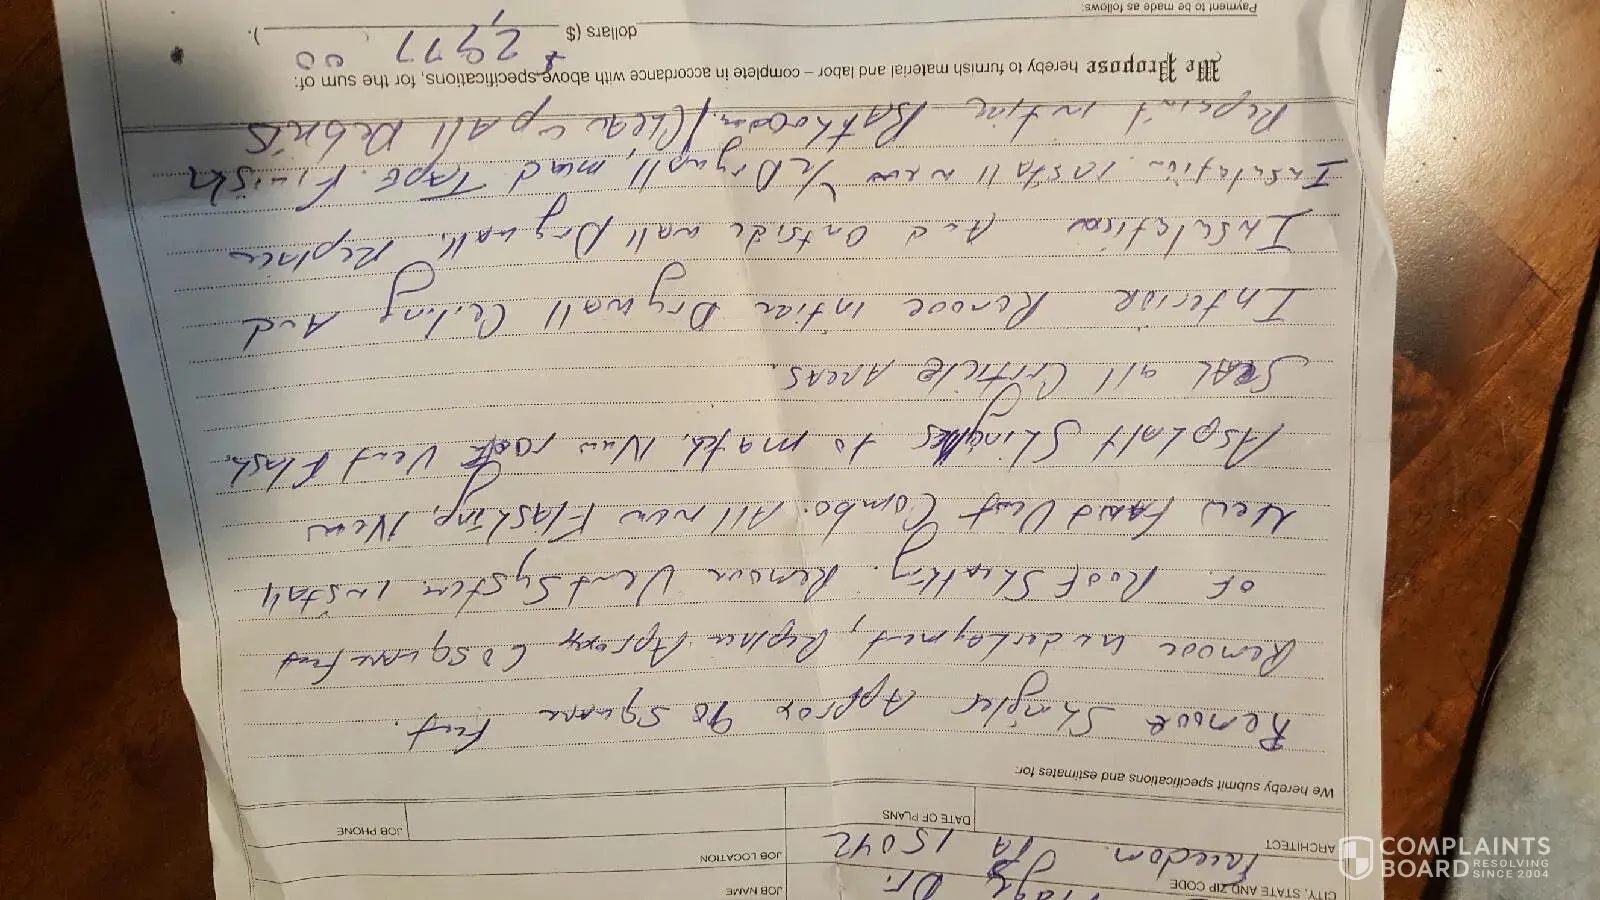 Dr.
CITY, STATE AND ZIP CODE
JOB NAME
Freedom PA 15042
JOB LOCATION
ARCHITECT
DATE OF PLANS
JOB PHONE
We hereby submit specifications and estimates for:
Remove Shingles Approx 90 square feet.
Remove underlayment, Replace Aproxx 60 square feet
OF Roof Sheathing. Remove Vent System install
New Fan Vent Combo. All new Flashing, New
Asphalt Shingles to match. New roof Vent Flash.
SEAL all Criticle AREAS.
Interior Remove intire Drywall Ceiling And
Insulation And Outside wall Drywall, Replace
Insulation install new 1/2 Drywall, mud TAPE Finish
Repaint intire Bathroom, Clean up All Debris
We Propose hereby to furnish material and labor – complete in accordance with above specifications, for the sum of:
dollars ($ 2,977 00 ).
Payment to be made as follows:
COMPLAINTS
BOARD RESOLVING
SINCE 2004